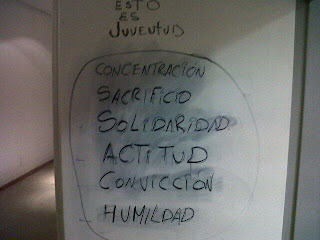 ESTO
ES
JUVENTUD
CONCENTRACIÓN
SACRIFICIO
SOLIDARIDAD
ACTITUD
CONVICCIÓN
HUMILDAD